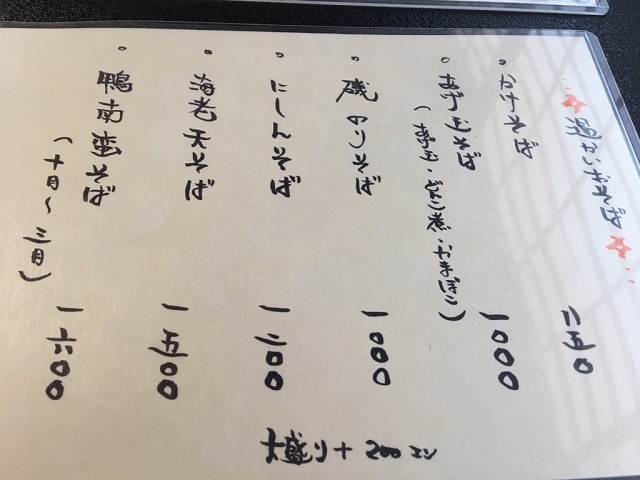 ☆温かいおそば☆
。かけそば 八五〇
。あげ玉そば 一〇〇〇
(あげ玉・煮・かまぼこ)
。磯のりそば 一〇〇〇
。にしんそば 一二〇〇
。海老天そば 一五〇〇
。鴨南蛮そば 一六〇〇
(十月～三月)
大盛り+200エン